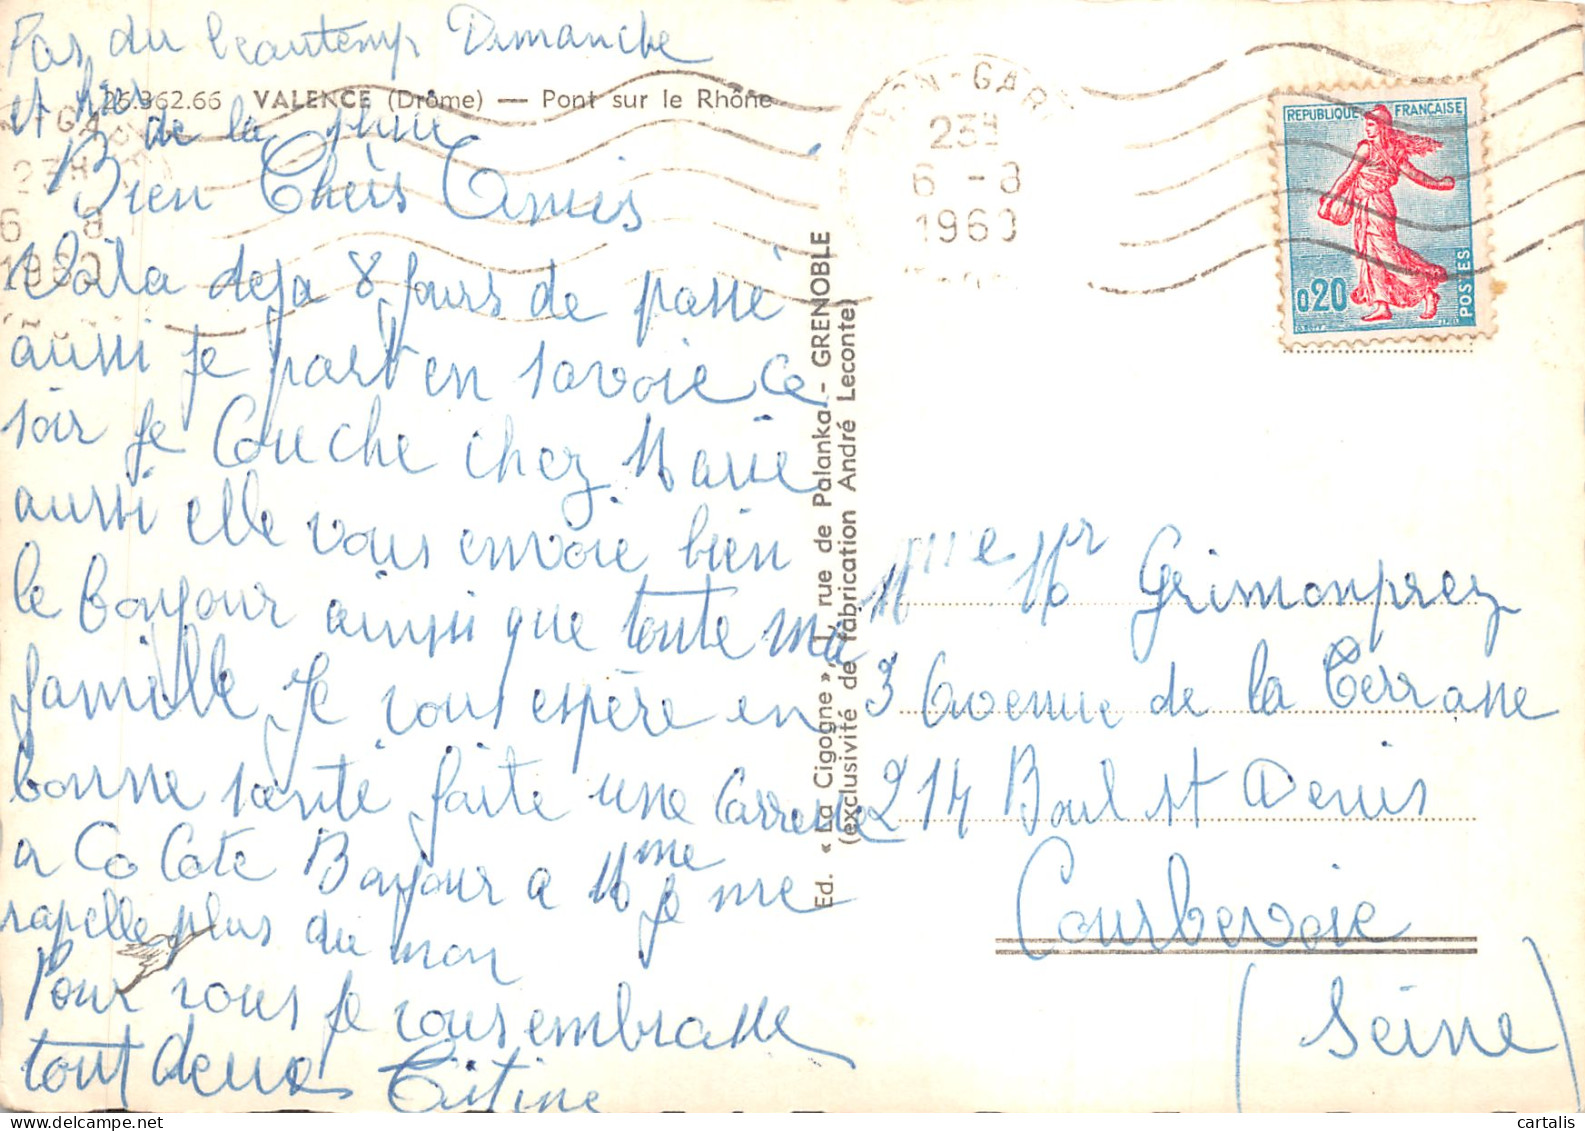 Pas du beautemp Dimanche
et hier
26.362.66 VALENCE (Drôme) — Pont sur le Rhône
de la pluie
Bien Chèrs Amis
Voila deja 8 jours de passé
aussi je part en savoie ce
soir je Couche chez Marie
aussi elle vous envoie bien
le bonjour ainssi que toute ma
famille Je vous espère en
bonne santé faite une Carresse
a Co Cote Bonjour a Mme Je me
rapelle plus du non
Pour vous je vous embrasse
tout deux Titine
Ed. « La Cigogne », 1, rue de Palanka - GRENOBLE
(exclusivité de fabrication André Leconte)
LYON-GARE
23H
6 - 8
1960
REPUBLIQUE FRANÇAISE
0,20
POSTES
Mme Mr Grimonprez
3 Avenue de la Terrasse
214 Boul St Denis
Courbevoie
(Seine)
cartalis